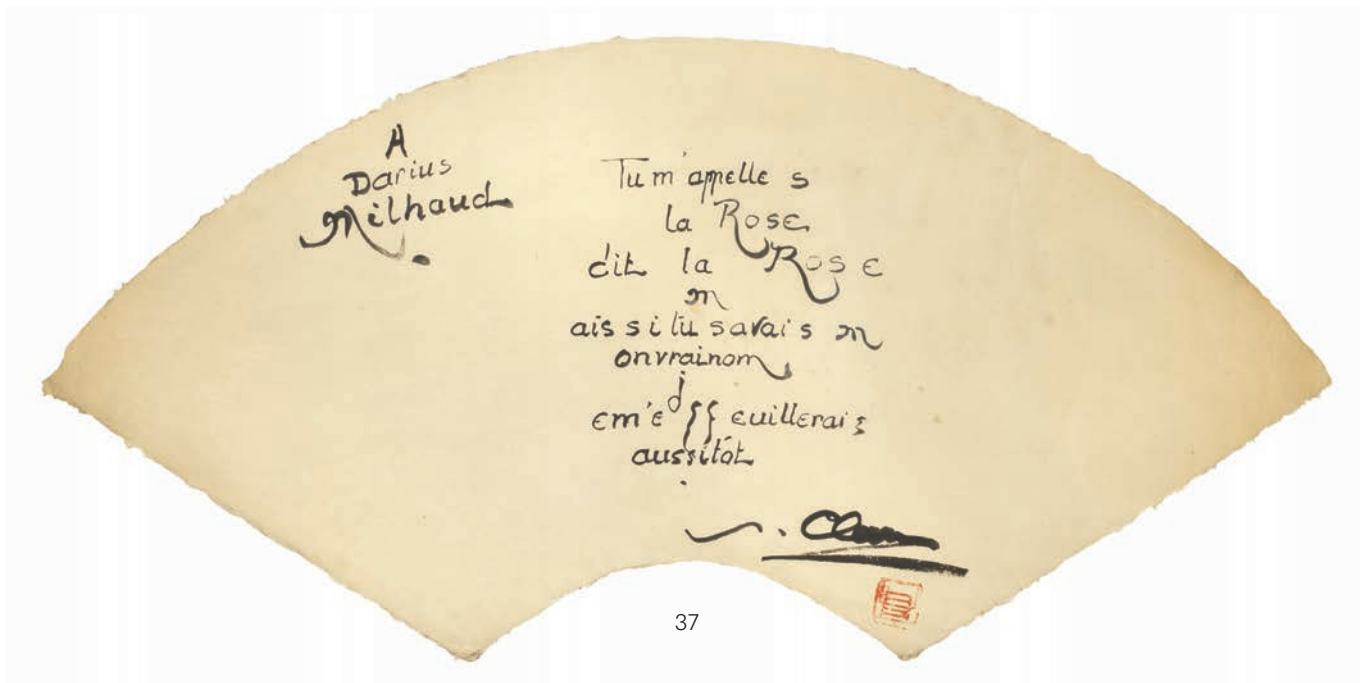 A
Darius
Milhaud
Tu m'appelle s
la Rose
dit la Rose
m
ais si tu savais m
onvrainom
j
em'e ff euillerais
aussitôt
.
37